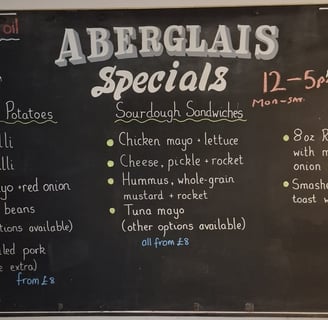 oil
ABERGLAIS
Specials
12-5p
MON-SAT.
Potatoes
lli
lli
yo + red onion
beans
tions available)
led pork
e extra)
from £8
Sourdough Sandwiches
Chicken mayo + lettuce
Cheese, pickle + rocket
Hummus, whole-grain
mustard + rocket
Tuna mayo
(other options available)
all from £8
8oz R
with m
onion
Smashe
toast w